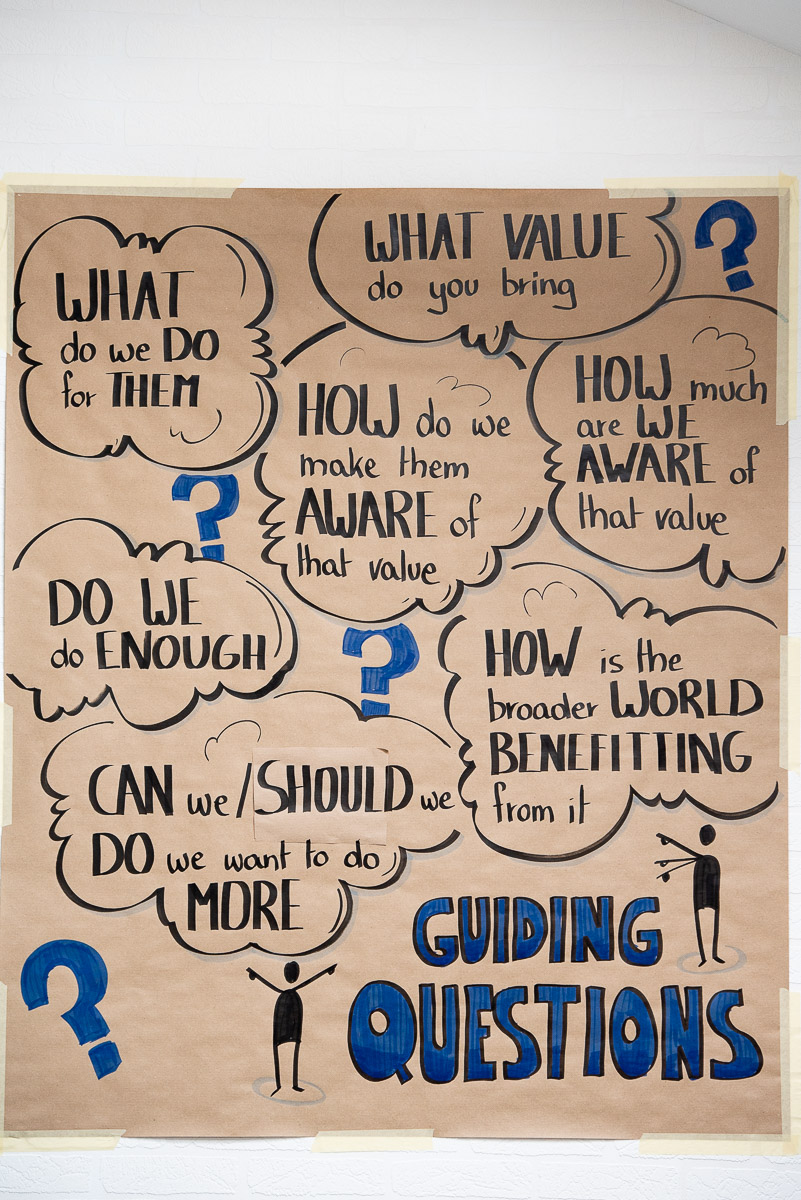 WHAT
do we DO
for THEM
WHAT VALUE
do you bring
?
HOW do we
make them
AWARE of
that value
HOW much
are WE
AWARE of
that value
?
DO WE
do ENOUGH
?
HOW is the
broader WORLD
BENEFITTING
from it
CAN we/SHOULD we
DO we want to do
MORE
?
GUIDING
QUESTIONS